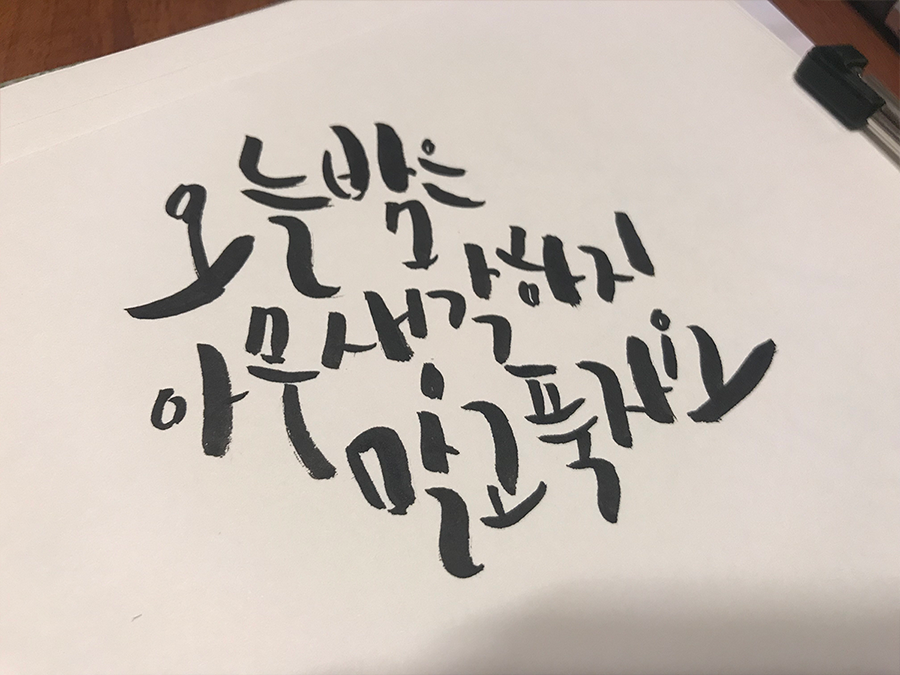 오늘밤은
아무생각하지
말고푹자요